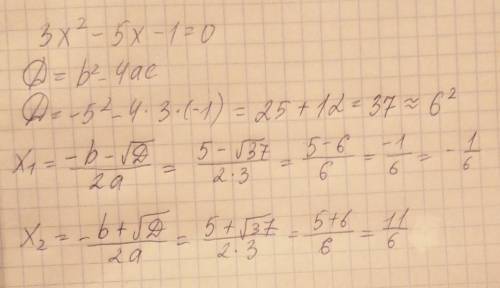 3x² - 5x - 1 = 0
D = b² - 4ac
D = -5² - 4 · 3 · (-1) = 25 + 12 = 37 ≈ 6²
x₁ = (-b - √D)/2a = (5 - √37)/(2 · 3) = (5 - 6)/6 = -1/6 = - 1/6
x₂ = (-b + √D)/2a = (5 + √37)/(2 · 3) = (5 + 6)/6 = 11/6